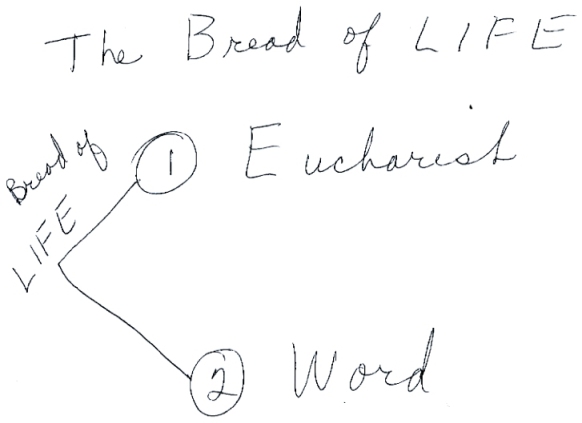 The Bread of LIFE
Bread of
LIFE
1 Eucharist
2 Word